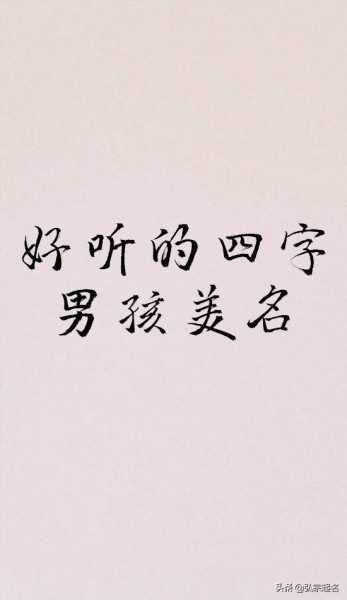 好听的四字
男孩美名
头条 @弘宗起名